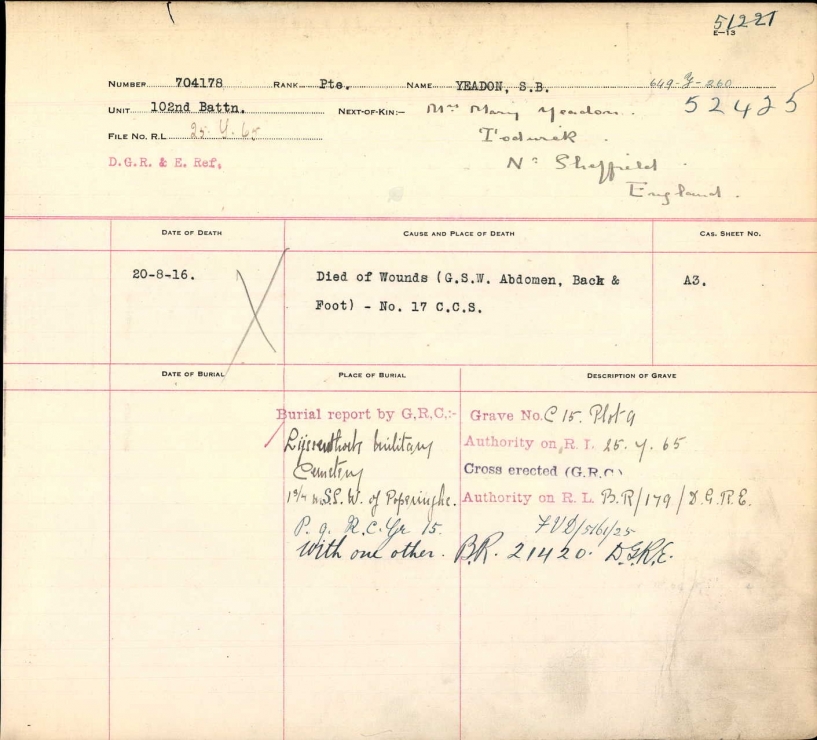 51221
E-13
NUMBER 704178 RANK Pte. NAME YEADON, S.B. 649-Y-260
UNIT 102nd Battn. NEXT-OF-KIN:- Mrs Mary Yeadon. 52425
FILE NO. R.L. 25. Y. 65 Todwick.
D.G.R. & E. Ref. Nr Sheffield
England.
DATE OF DEATH CAUSE AND PLACE OF DEATH CAS. SHEET NO.
20-8-16. Died of Wounds (G.S.W. Abdomen, Back & A3.
Foot) - No. 17 C.C.S.
DATE OF BURIAL PLACE OF BURIAL DESCRIPTION OF GRAVE
Burial report by G.R.C.:- Grave No. C 15. Plot 9
Lijssenthoek Military Authority on R. L. 25. Y. 65
Cemetery Cross erected (G.R.C.)
1¾ m S.S.W. of Poperinghe. Authority on R. L. B.R/179/D.G.R.E.
P. 9. R.C. Gr 15.
With one other. B.R. 21420. D.G.R.E.